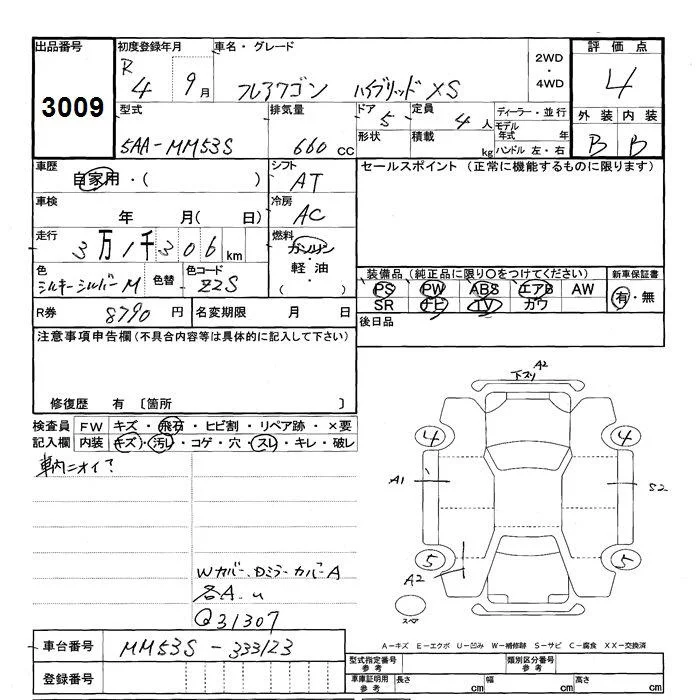 出品番号 初度登録年月 車名・グレード 2WD・4WD 評価点
3009 R4 9月 フレアワゴン ハイブリッド XS 4
型式 排気量 ドア 5 定員 4人 ディーラー・並行 外装 内装
5AA-MM53S 660cc 形状 積載 kg モデル年式 年 ハンドル 左・右 B B
車歴 自家用・( ) シフト AT セールスポイント (正常に機能するものに限ります)
車検 年 月( 日) 冷房 AC
走行 3万1千306km 燃料 ガソリン・軽油・( )
色 シルキーシルバーM 色替 色コード ZZS 装備品 (純正品に限り〇をつけてください) 新車保証書
PS PW ABS エアB AW 有・無
SR ナビ TV カワ
R券 8790円 名変期限 月 日 後日品
注意事項申告欄(不具合内容等は具体的に記入して下さい)
修復歴 有 〔箇所 〕
検査員 FW キズ・飛石・ヒビ割・リペア跡・×要
記入欄 内装 キズ・汚レ・コゲ・穴・スレ・キレ・破レ
車内ニオイ?
Wカバー、Dミラーカバー A
各A.u
Q31307
下スリ A2
4 4
A1 S2
5 5
A2
スペア
A-キズ E-エクボ U-凹み W-補修跡 S-サビ C-腐食 XX-交換済
車台番号 MM53S-333123
登録番号
型式指定番号 参考 類別区分番号 参考
車庫証明用 参考 長さ cm 幅 cm 高さ cm